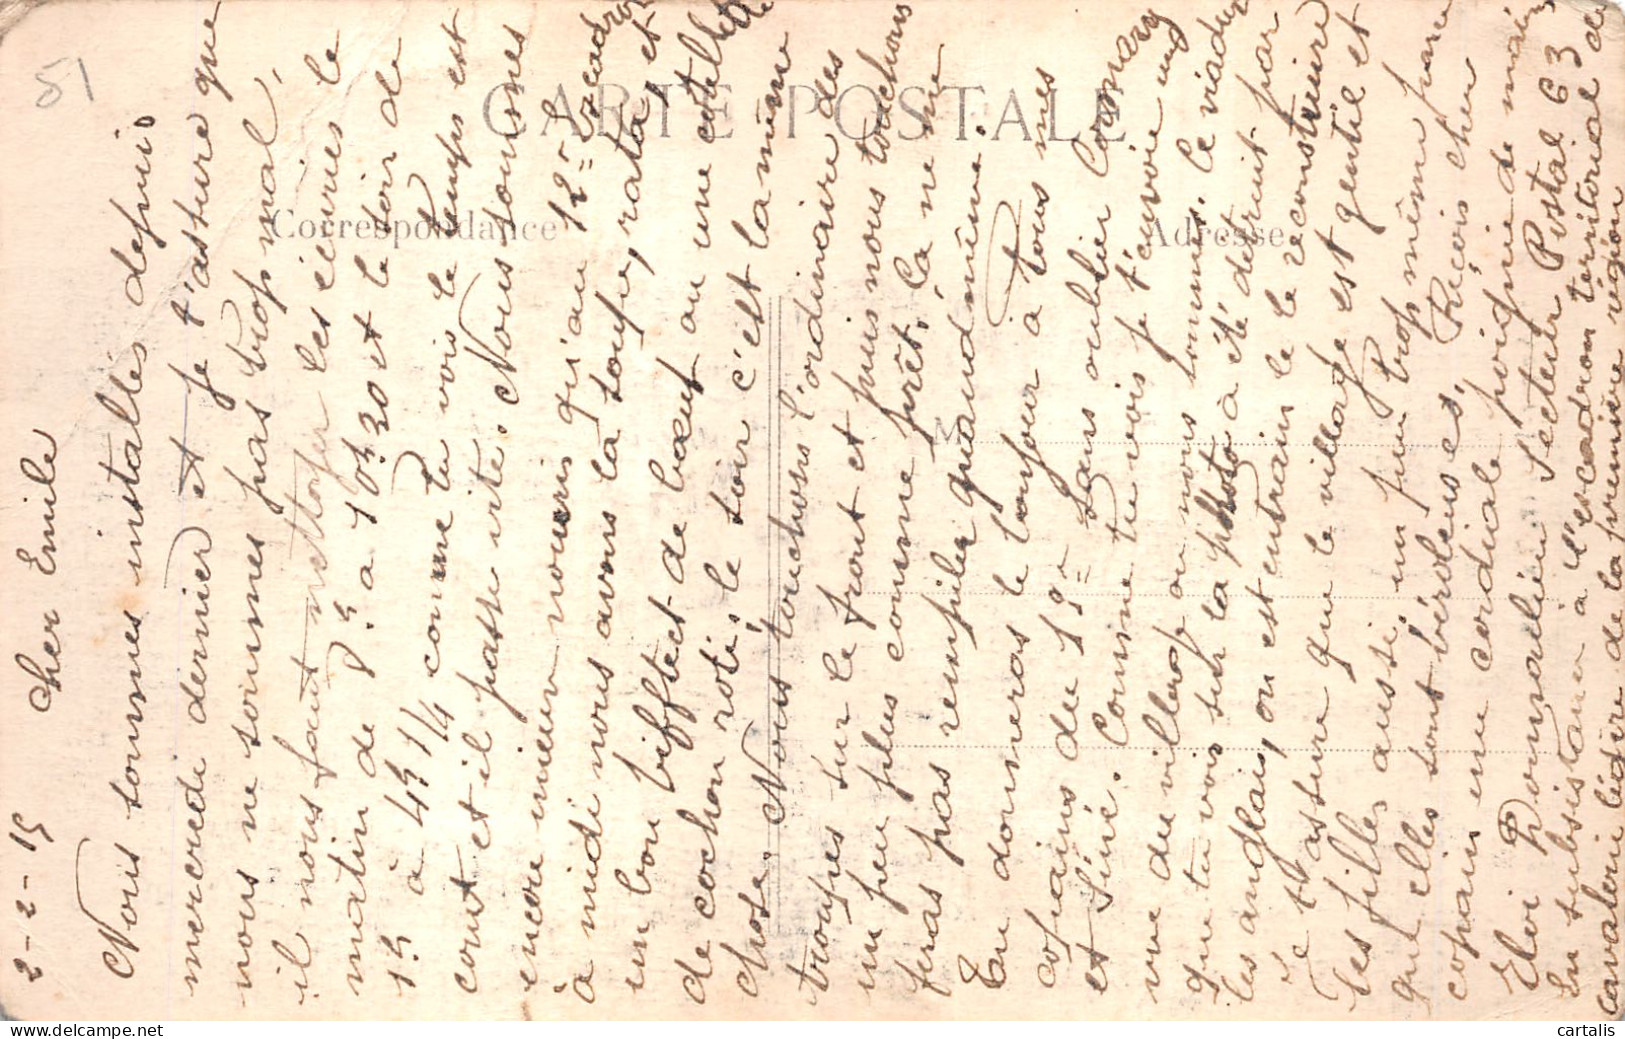 51
CARTE POSTALE
Correspondance
Adresse
2-2-15
Cher Emile
Nous sommes installés depuis
mercredi dernier et je t'assure que
nous ne sommes pas trop mal,
il nous faut nettoyer les écuries le
matin de 8h à 10h30 et le soir de
1h à 4h 1/4 comme tu vois le temps est
court et il passe vite. Nous sommes
encore mieux nourris qu'au 12e Escadron
à midi nous avons la soupe, rata, et
un bon bifftect de bœuf ou une cotellette
de cochon roti, le soir c'est la même
chose. Nous touchons l'ordinaire des
troupes sur le front et puis nous touchons
un peu plus comme prêt, ça ne me
feras pas rempiler quand même.
Tu donneras le bonjour à tous mes
copains du 19e sans oublier Comary
et Siné. Comme tu vois je t'envoie une
vue du village ou nous sommes. le viaduc
que tu vois sur la photo à été détruit par
les anglais, on est entrain de le reconstruire
Je t'assure que le village est gentil et
les filles aussi, un peu trop même parce
qu'elles sont véroleuses, Reçois cher
copain une cordiale poignée de main
Eloi secteur Postal 63
En subsistance à l'escadron territorial de
cavalerie légère de la première région
cartalis